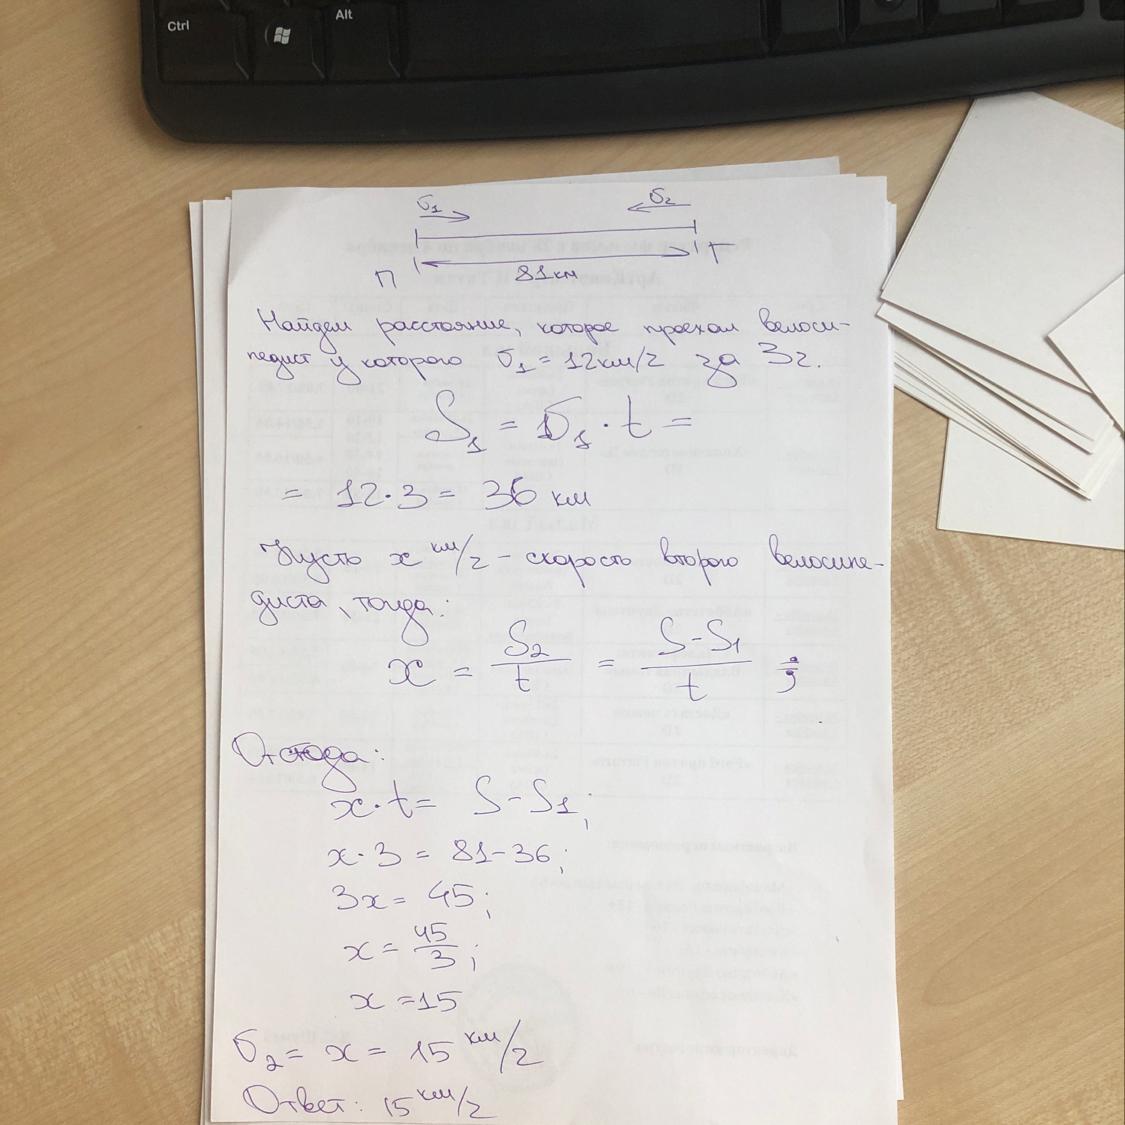 Ctrl
Alt
υ1 υ2
П 81км Т
Найдем расстояние, которое проехал велоси-
педист у которого υ1 = 12км/г за 3г.
S1 = υ1 · t =
= 12·3 = 36 км
Пусть x км/г - скорость второго велосипе-
диста, тогда:
x = S2/t = S-S1/t ;
Отсюда:
x·t = S-S1;
x·3 = 81-36;
3x = 45;
x = 45/3;
x = 15
υ2 = x = 15 км/г
Ответ: 15 км/г